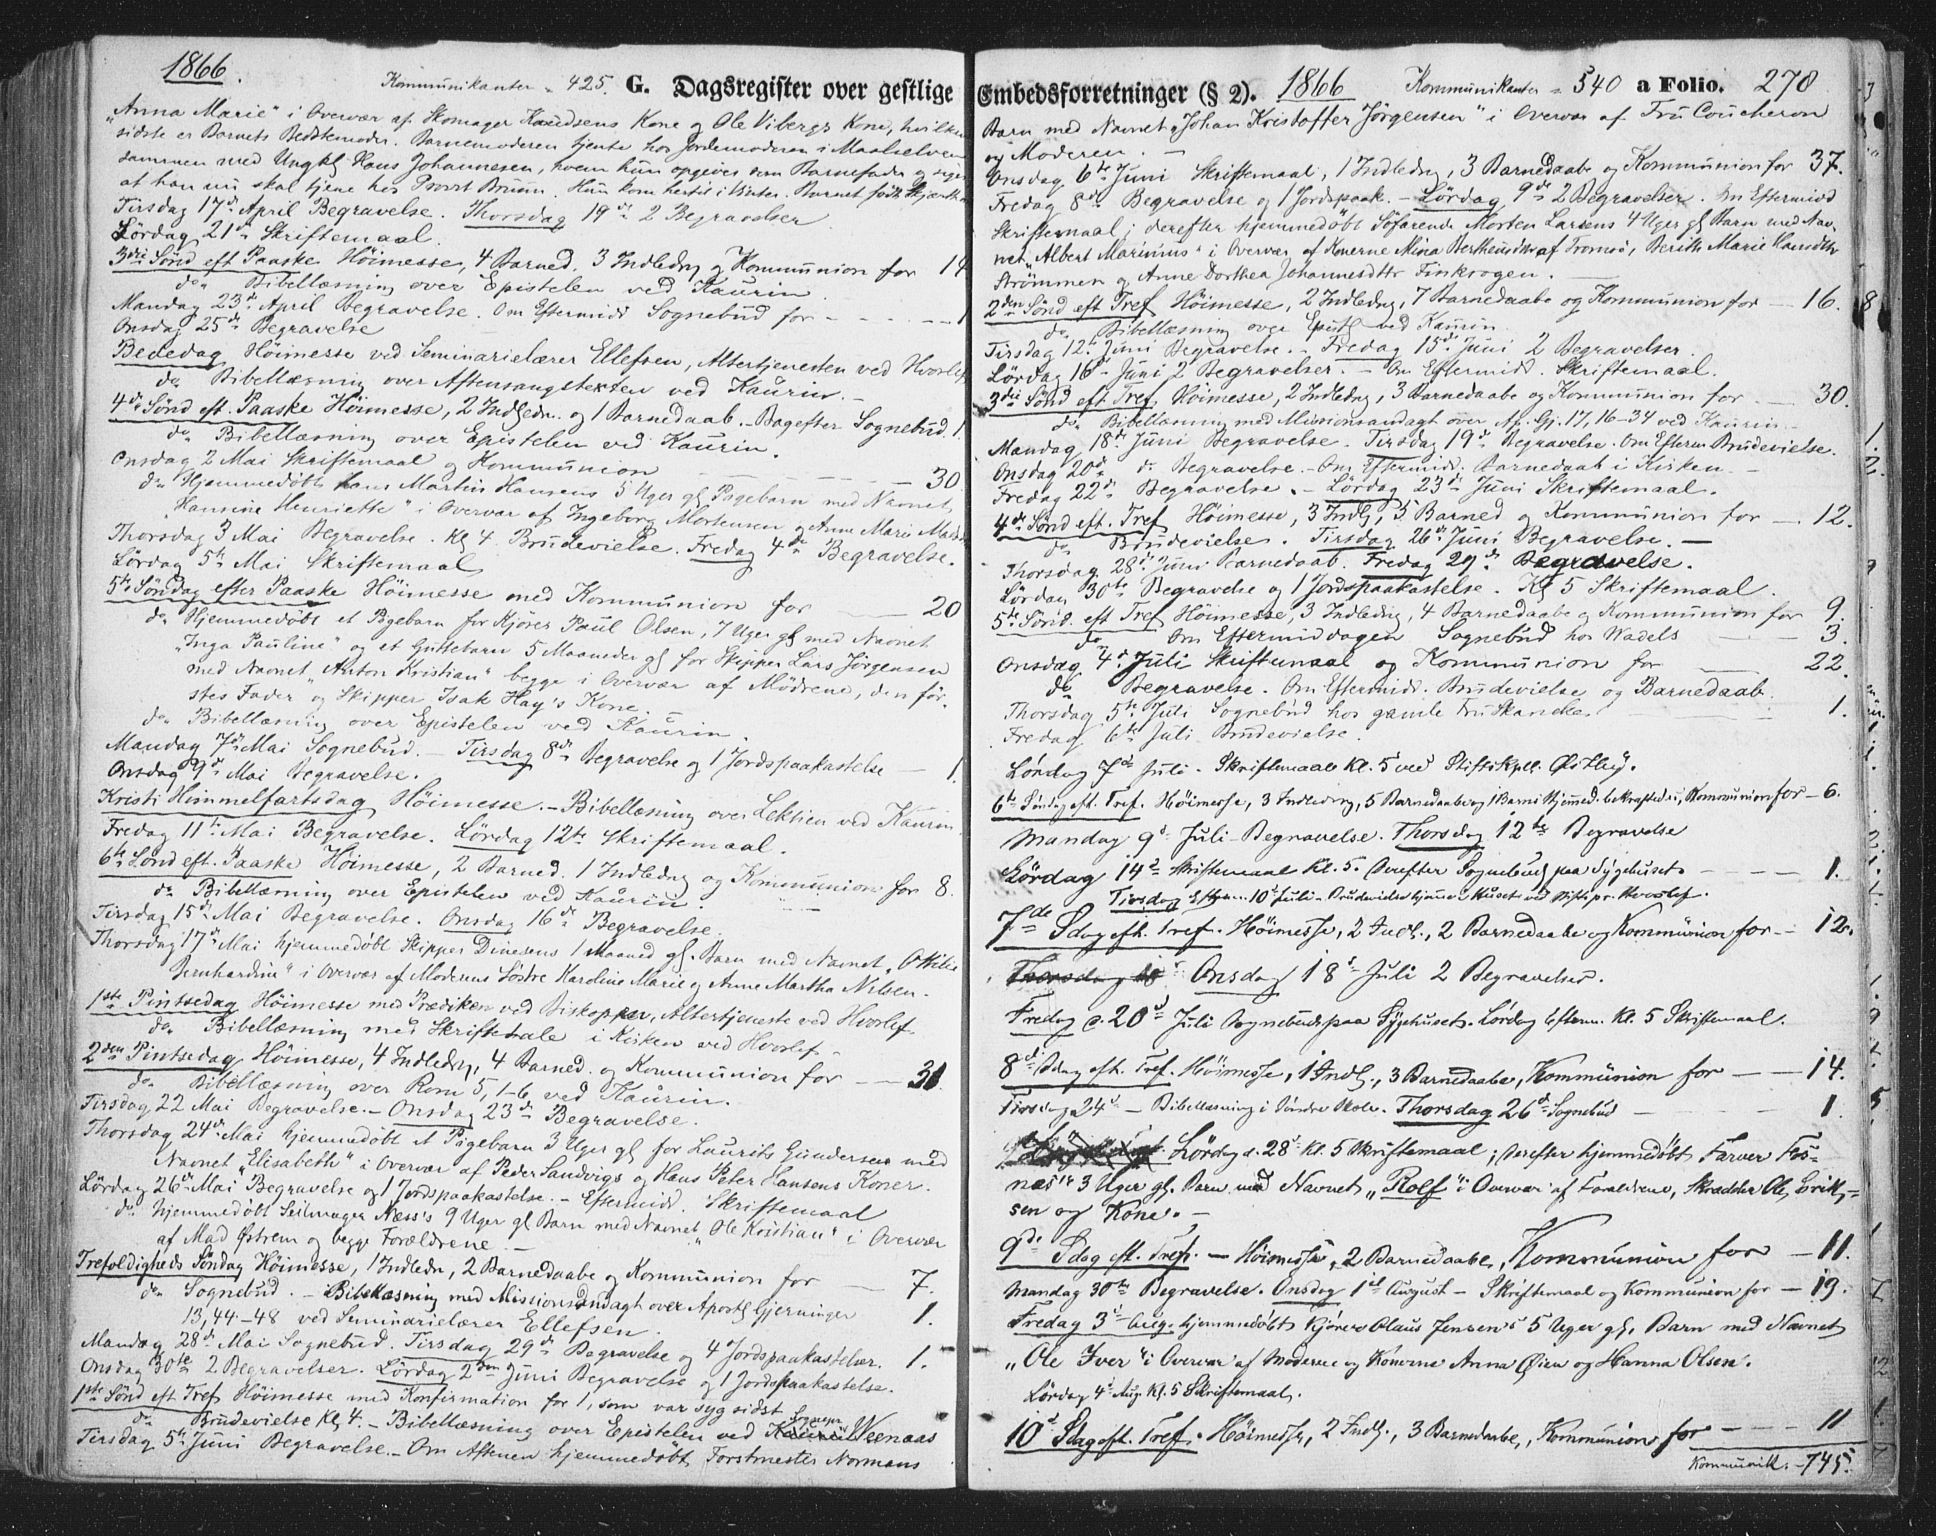 1866.
Kommunikanter = 425. G. Dagsregister over gestlige
"Anna Marie" i Overvær af Skomager Knudsens Kone og Ole Vibergs Kone, hvilken
sidste er Barnets Bedstemoder. Barnemoderen tjente hos Jordemoderen i Maalselven
sammen med Ungkl Hans Johannesen, hvem hun opgives som Barnefader og siger
at han nu skal tjene hos Provst Bruun. Hun kom hertil i Vinter. Barnet født
Tirsdag 17de April Begravelse. Thorsdag 19de 2 Begravelser
Lördag 21de Skriftemaal.
3die Sönd eft Paaske Höimesse, 4 Barned, 3 Indledng og Kommunion for 14
do Bibellæsning over Epistelen ved Kaurin
Mandag 23de April Begravelse. Om Eftermidd Sognebud for - - - - 1
Onsdag 25de Begravelse
Bededag Höimesse ved Seminarielærer Ellefsen, Altertjenesten ved Hvoslef
do Bibellæsning over Aftensangstexten ved Kaurin. -
4de Sönd eft. Paaske Höimesse, 2 Indledn. og 1 Barnedaab. - Bagefter Sognebud. 1.
do Bibellæsning over Epistelen ved Kaurin.
Onsdag 2 Mai Skriftemaal og Kommunion - - - 30.
do Hjemmedöbt Hans Martin Hansens 5 Uger gl Pigebarn med Navnet,
Hansine Henriette" i Overvær af Ingeborg Mortensen og Anne Marie
Thorsdag 3 Mai Begravelse. Kl 4 Brudevielse. Fredag 4de Begravelse.
Lördag 5te Mai Skriftemaal
5te Söndag efter Paaske Höimesse med Kommunion for - 20
do Hjemmedöbt et Pigebarn for Kjörer Paul Olsen, 7 Uger gl med Navnet
"Inga Pauline" og et Guttebarn 5 Maaneder gl for Skipper Lars Jörgensen
med Navnet "Anton Kristian" begge i Overvær af Mödrene, den för-
stes Fader og Skipper Isak Hay's Kone.
do Bibellæsning over Epistelen ved Kaurin.
Mandag 7de Mai Sognebud. - Tirsdag 8de Begravelse og 1 Jordspaakastelse - 1.
Onsdag 9de Mai Begravelse.
Kristi Himmelfartsdag Höimesse. - Bibellæsning over Lektien ved Kaurin.
Fredag 11te Mai Begravelse. Lördag 12te Skriftemaal.
6te Sönd eft. Paaske Höimesse, 2 Barned. 1 Indledng og Kommunion for 8.
do Bibellæsning over Epistelen ved Kaurin.
Tirsdag 15de Mai Begravelse. Onsdag 16de Begravelse.
Thorsdag 17de Mai hjemmedöbt Skipper Dinesens 1 Maaned gl. Barn med Navnet "Ottilie
Bernhardine" i Overvær af Moderens Söstre Karoline Marie og Anne Martha Nilsen.
1ste Pintsedag Höimesse med Prædiken ved Biskoppen, Altertjeneste ved Hvoslef
do Bibellæsning med Skriftetale i Kirken ved Hvoslef -
2den Pintsedag Höimesse, 4 Indledng, 4 Barned. og Kommunion for - 31.
do Bibellæsning over Rom 5, 1-6, ved Kaurin.
Tirsdag 22 Mai Begravelse. - Onsdag 23de Begravelse.
Thorsdag 24de Mai hjemmedöbt et Pigebarn 3 Uger gl for Laurits Gundersen med
Navnet "Elisabeth" i Overvær af Peder Sandvigs og Hans Peter Hansens Koner.
Lördag 26de Mai Begravelse og 1 Jordspaakastelse. - Eftermidd. Skriftemaal
do hjemmedöbt Seilmager Næss's 9 Uger gl Barn med Navnet "Ole Kristian" i Overvær
af Mad Östrem og begge Forældrene -
Trefoldigheds Söndag Höimesse, 1 Indledn, 2 Barnedaabe og Kommunion for - 7.
do Sognebud. - Bibellæsning med Missionsandagt over Apostl Gjerninger 1.
13,44-48 ved Seminarielærer Ellefsen.
Mandag 28de Mai Sognebud. Tirsdag 29de Begravelse og 4 Jordspaakastelser. 1.
Onsdag 30te 2 Begravelser. Lördag 2den Juni Begravelse og 1 Jordspaakastelse.
1ste Sönd eft Tref Höimesse med Konfirmation for 1, som var syg sidst
do Brudevielse Kl 4. - Bibellæsning over Epistelen ved Kaurin Sognepr Weenaas
Tirsdag 5te Juni Begravelse. - Om Aftenen hjemmedöbt Forstmester Normans
Embedsforretninger (§ 2). 1866 Kommunikanter = 540 a Folio. 278
Barn med Navnet "Johan Kristoffer Jörgensen" i Overvær af Fru Coucheron
og Moderen. -
Onsdag 6te Juni Skriftemaal, 1 Indledng, 3 Barnedaabe og Kommunion for 37.
Fredag 8de Begravelse og 1 Jordspaak. - Lördag 9de 2 Begravelser. Om Eftermidd
Skriftemaal; derefter hjemmedöbt Söfarende Morten Larsens 4 Uger gl Barn med Nav-
net "Albert Marinius" i Overvær af Konerne Mina Bertheusdtr af Tromsö, Berith Marie
Strömmen og Anne Dorthea Johannesdtr Finkrogen.
2den Sönd eft Tref Höimesse, 2 Indledng, 7 Barnedaabe og Kommunion for - 16.
do Bibellæsning over Epistl ved Kaurin
Tirsdag 12te Juni Begravelse. - Fredag 15de Juni 2 Begravelser.
Lördag 16de Juni 2 Begravelser. - Om Eftermidd. Skriftemaal.
3die Sönd eft Tref. Höimesse, 2 Indledng, 3 Barnedaabe og Kommunion for - 30.
do Bibellæsning med Missionsandagt over Ap. Gj. 17, 16-34 ved Kaurin -
Mandag 18de Juni Begravelse. Tirsdag 19de Begravelse. Om Efterm Brudevielse.
Onsdag 20de do Begravelse. - Om Eftermidd. Barnedaab i Kirken. -
Fredag 22de Begravelse. - Lördag 23de Juni Skriftemaal.
4de Sönd eft. Tref Höimesse, 3 Indl, 3 Barned og Kommunion for - 12.
do Brudevielse. Tirsdag 26de Juni Begravelse. -
Thorsdag 28de Juni Barnedaab. Fredag 29de Begravelse.
Lördag 30te Begravelse og 1 Jordspaakastelse. Kl 5 Skriftemaal.
5te Sönd. eft Tref Höimesse, 3 Indledng, 4 Barnedaabe og Kommunion for 9.
do Om Eftermiddagen Sognebud hos Wadels - 3.
Onsdag 4de Juli Skriftemaal og Kommunion for - 22
do Begravelse. Om Eftermidd. Brudevielse og Barnedaab.
Thorsdag 5te Juli Sognebud hos gamle Fru Skancke - 1.
Fredag 6te Juli Brudevielse.
Lördag 7de Juli. Skriftemaal Kl. 5 ved Stiftskpll. Østbÿ.
6te Söndag eft. Tref. Höimesse, 3 Indledng, 5 Barnedaabe og 1 Barns Hjemmed. bekræftedes, Kommunion for - 6.
Mandag 9de Juli Begravelse. Thorsdag 12te Begravelse
Lördag 14de Skriftemaal Kl. 5. Derefter Sognebud paa Sygehuset - - - 1.
Tirsdag Efterm. 10de Juli - Brudevielse hjemme i Huset ved Stiftspr. Hvoslef.
7de Sdag eft. Tref. Höimesse, 2 Indl., 2 Barnedaabe og Kommunion for - 12.
Thorsdag Onsdag 18de Juli 2 Begravelser.
Fredag d. 20de Juli Sognebud paa Sygehuset. Lördag Efterm. Kl. 5 Skriftemaal.
8de Sdag eft. Tref. Höimesse, 1 Indl., 3 Barnedaabe, Kommunion for - - 14.
Tirsdag 24de - Bibellæsning i Söndre Skole. Thorsdag 26de Sognebud - 1.
Lördag d. 28de Kl. 5 Skriftemaal; derefter hjemmedöbt Farver Fos-
næs's 3 Uger gl. Barn med Navnet "Rolf" i Overvær af Forældrene, Skrædder Ole Erik-
sen og Kone. -
9de Sdag eft. Tref. - Höimesse, 2 Barnedaabe, Kommunion for - 11.
Mandag 30te Begravelse. Onsdag 1ste August - Skriftemaal og Kommunion for - 19.
Fredag 3de Aug. hjemmedöbt Kjörer Claus Jensen's 5 Uger gl. Barn med Navnet
"Ole Iver" i Overvær af Moderen og Konerne Anna Øien og Hanna Olsen.
Lördag 4de Aug. Kl. 5 Skriftemaal.
10de Sdag eft. Tref. Höimesse, 2 Indl., 3 Barnedaabe, Kommunion for - 11
Kommunik. - 745.